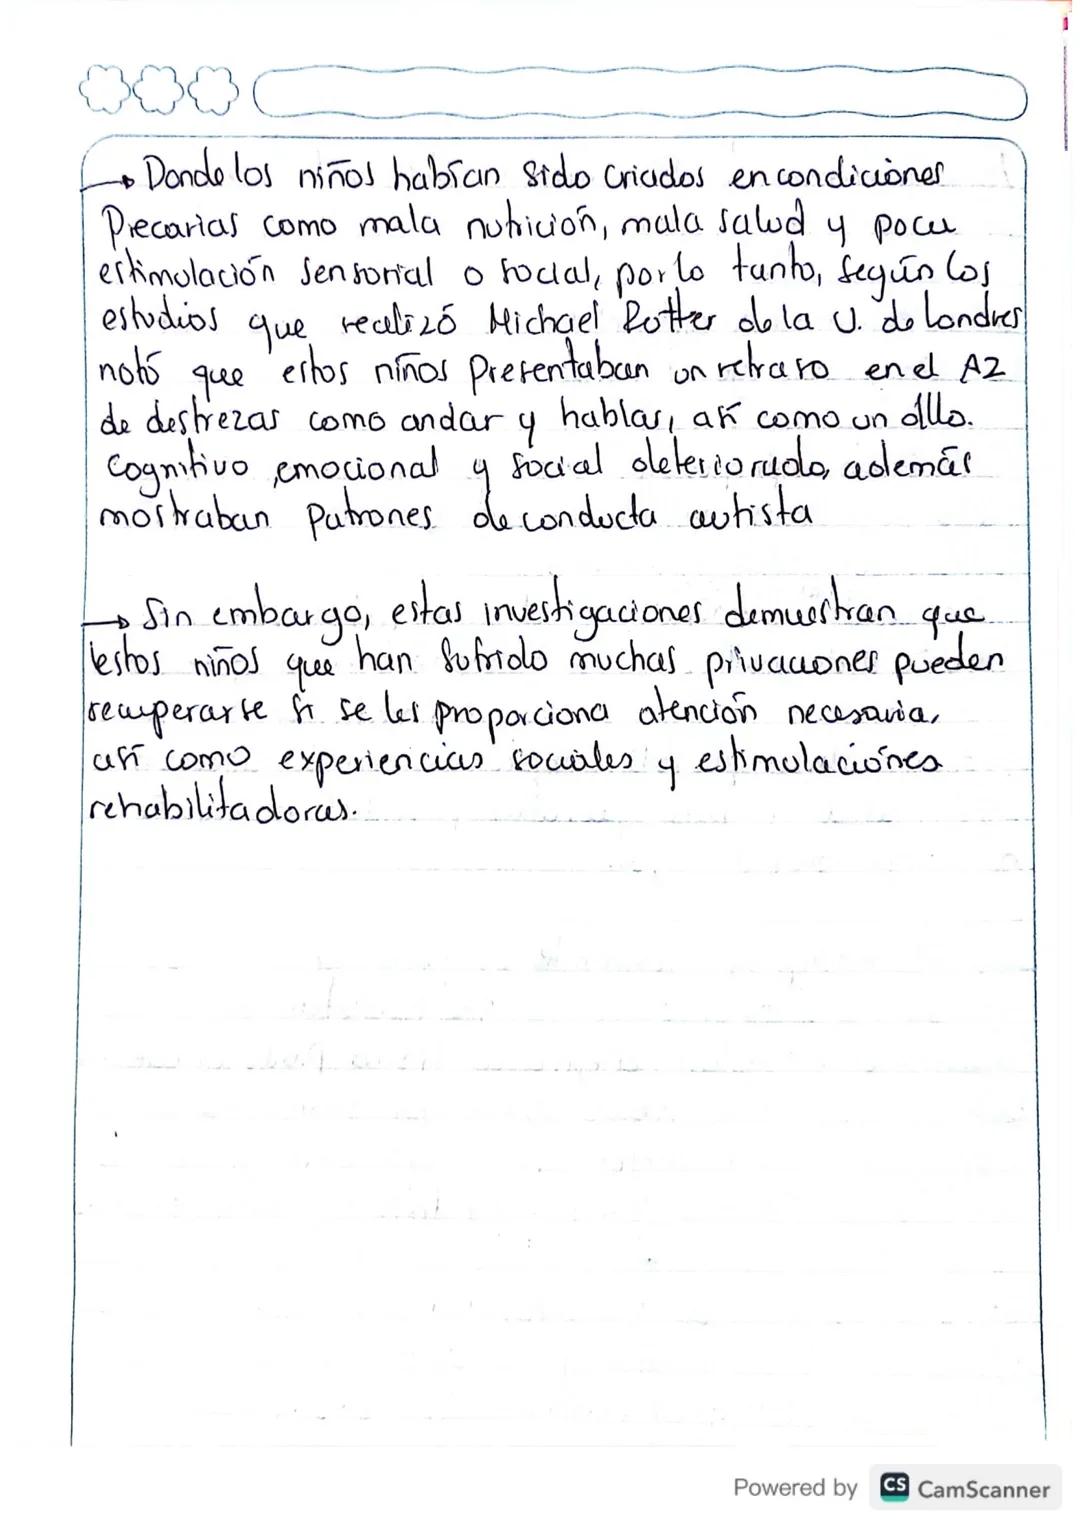 → Donde los niños habían sido criados en condiciones
Precarias como mala nutrición, mala salud y poca
estimulación sensorial o social, por lo tanto, según los
estudios que realizó Michael Rotter de la U. de Londres
notó que estos niños presentaban un retraso en el AZ
de destrezas como andar y hablar, así como un dllo.
Cognitivo, emocional y social deteriorado, además
mostraban patrones de conducta autista
→ Sin embargo, estas investigaciones demuestran que
estos niños que han sufrido muchas privaciones pueden
recuperarse si se les proporciona atención necesaria,
así como experiencias sociales y estimulaciónes
rehabilitadoras.
Powered by CS CamScanner